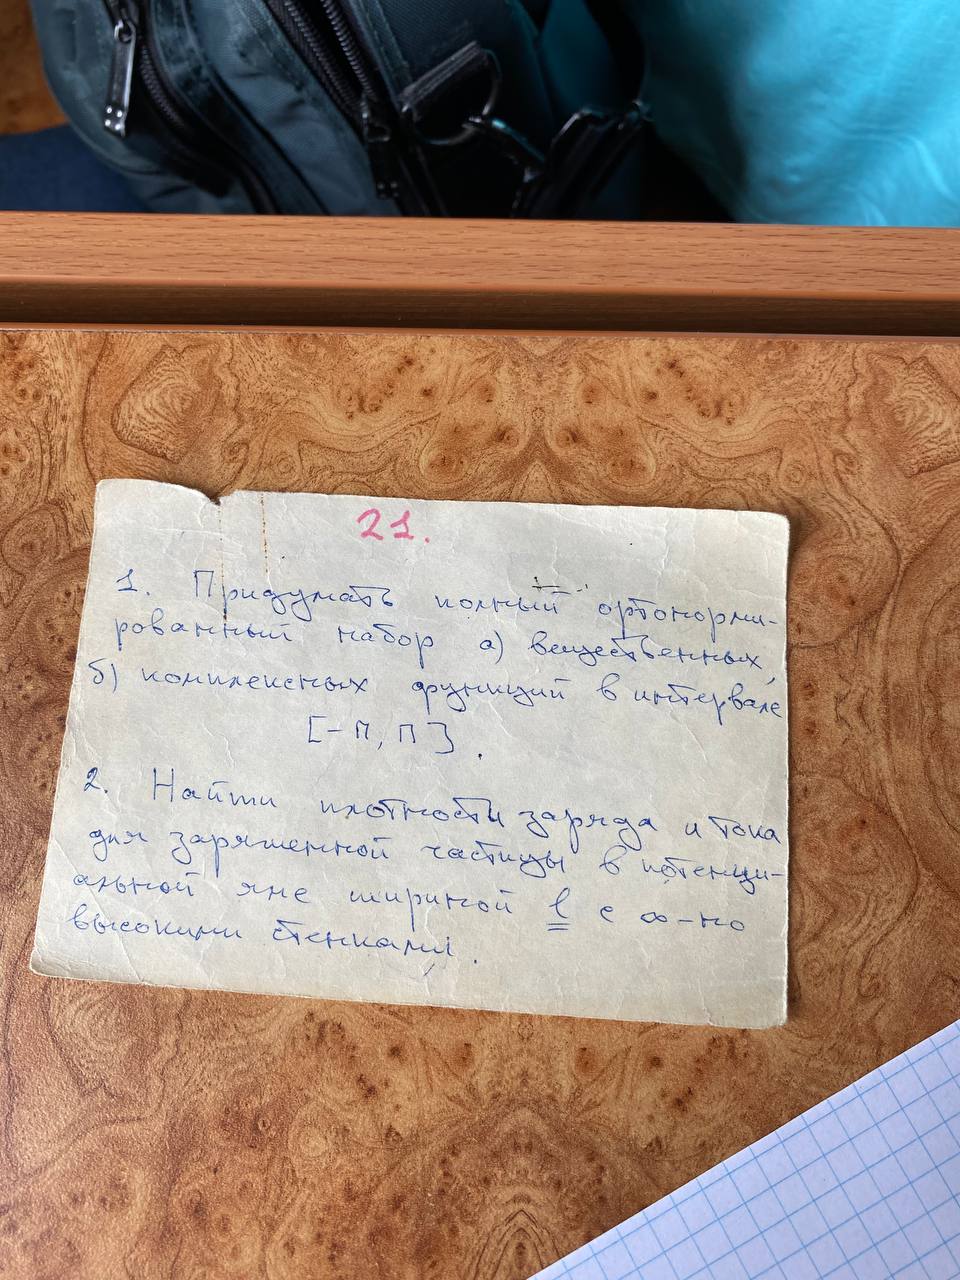 21.
1. Придумать полный ортонорми-
рованный набор а) вещественных,
б) комплексных функций в интервале
[-π, π].
2. Найти плотности заряда и тока
для заряженной частицы в потенци-
альной яме шириной l с ∞-но
высокими стенками.